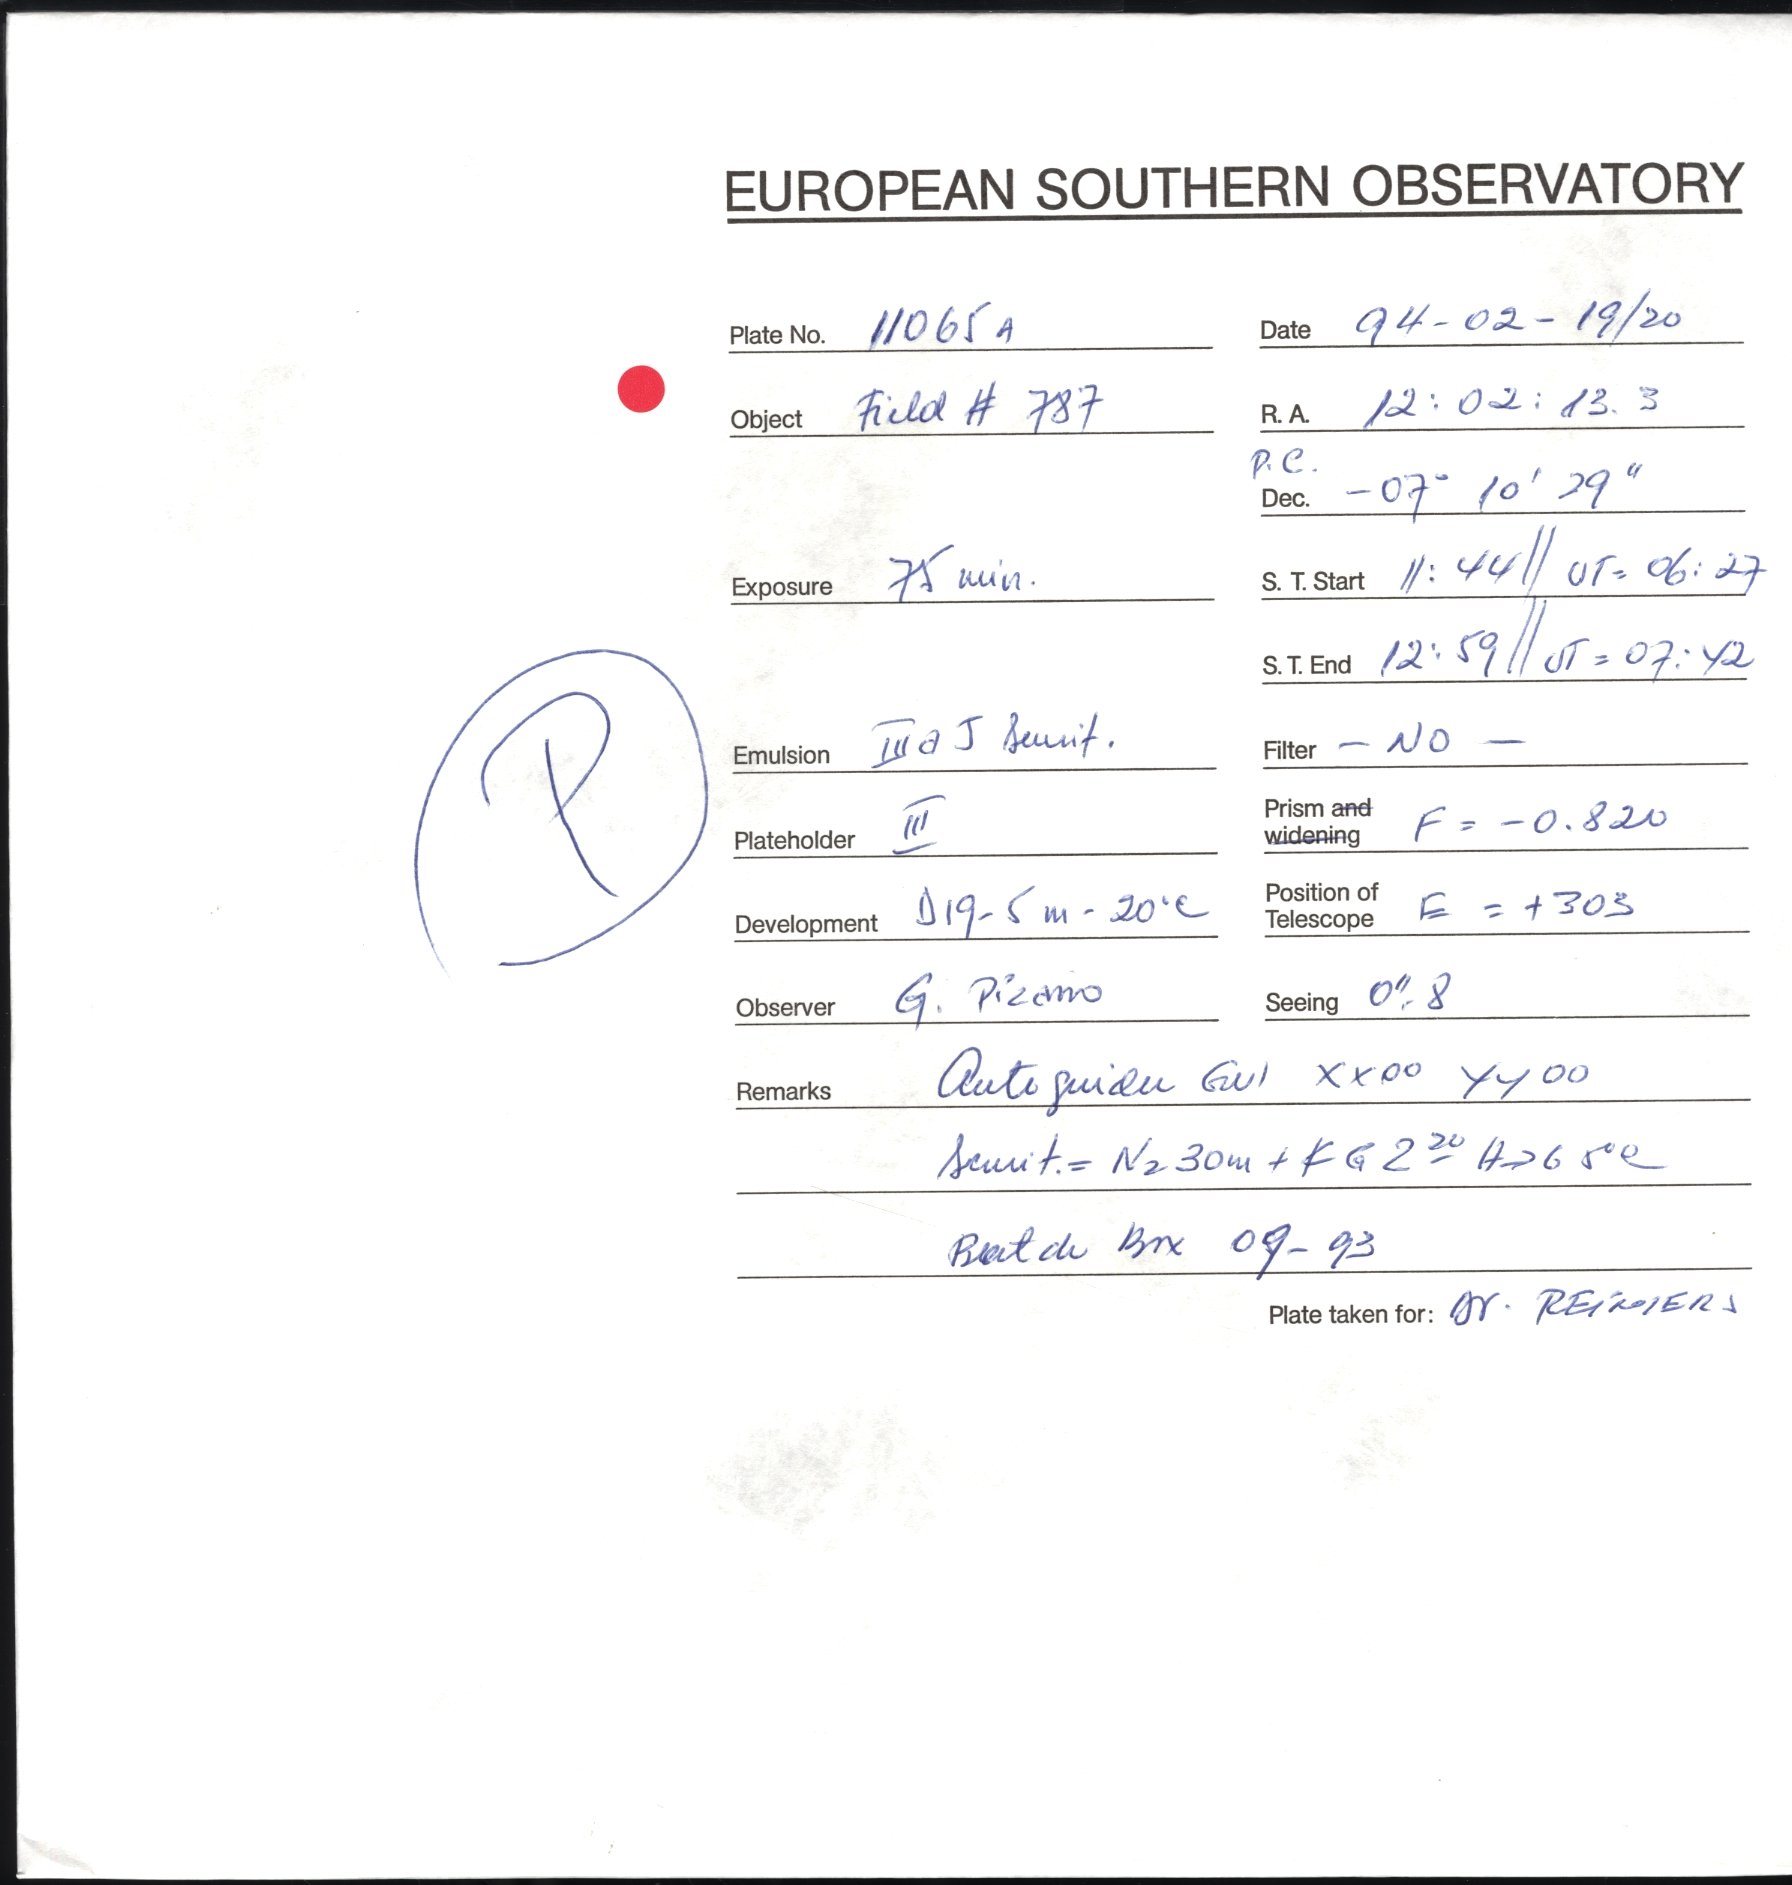 EUROPEAN SOUTHERN OBSERVATORY
Plate No. 11065 A
Date 94-02-19/20
Object Field # 787
R. A. 12:02:13.3
P.C.
Dec. -07° 10' 29"
Exposure 75 min.
S. T. Start 11:44 // UT= 06:27
S. T. End 12:59 // UT= 07:42
P
Emulsion III a J Sensit.
Filter - NO -
Plateholder III
Prism and widening F = -0.820
Development D19-5m-20°C
Position of Telescope E = +303
Observer G. Pizarro
Seeing 0".8
Remarks Autoguider XX00 YY00
Sensit.= N2 30m +
Batch Box 09-93
Plate taken for: Dr. REIMERS